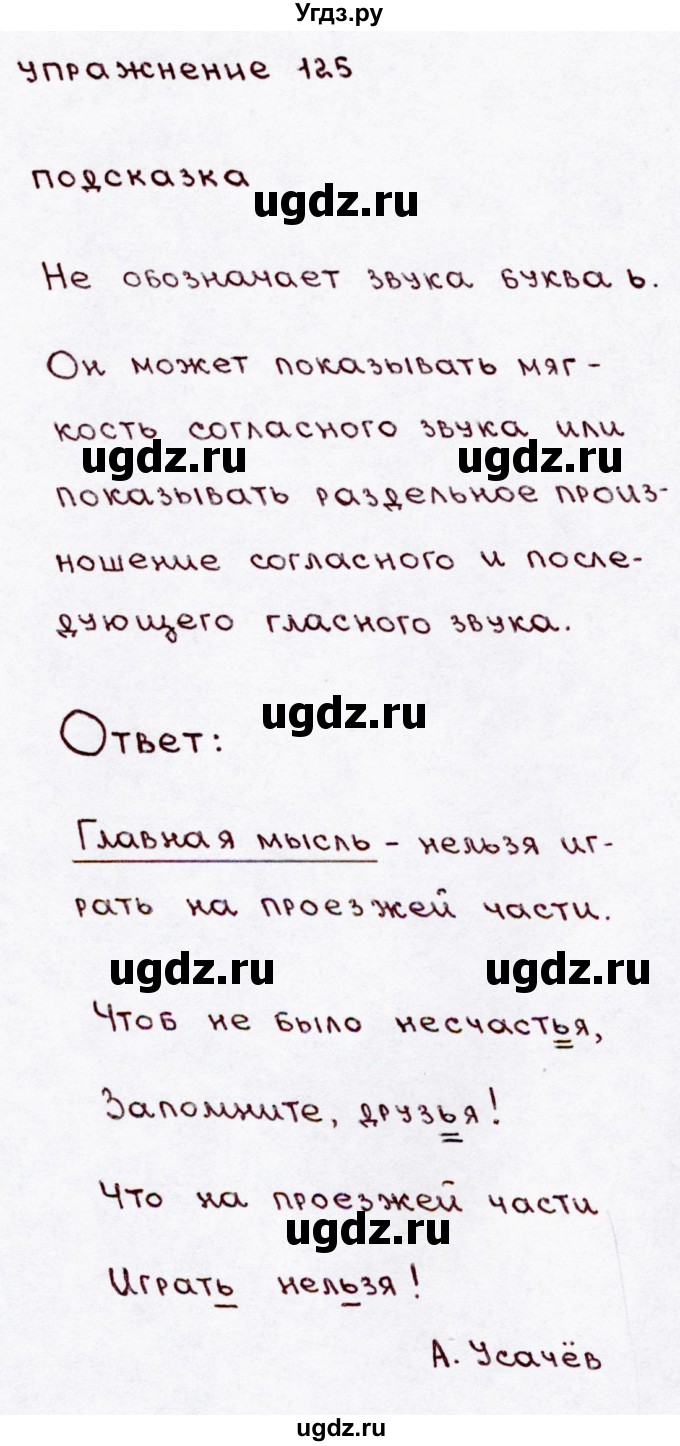 Угдз.ру
упражнение 125
подсказка
ugdz.ru
Не обозначает звука буква ь.
Он может показывать мяг-
кость согласного звука или
ugdz.ru ugdz.ru
показывать раздельное произ-
ношение согласного и после-
дующего гласного звука.
ugdz.ru
Ответ:
Главная мысль - нельзя иг-
рать на проезжей части.
ugdz.ru ugdz.ru
Чтоб не было несчастья,
Запомните, друзья!
Что на проезжей части
ugdz.ru
Играть нельзя!
А. Усачёв
ugdz.ru